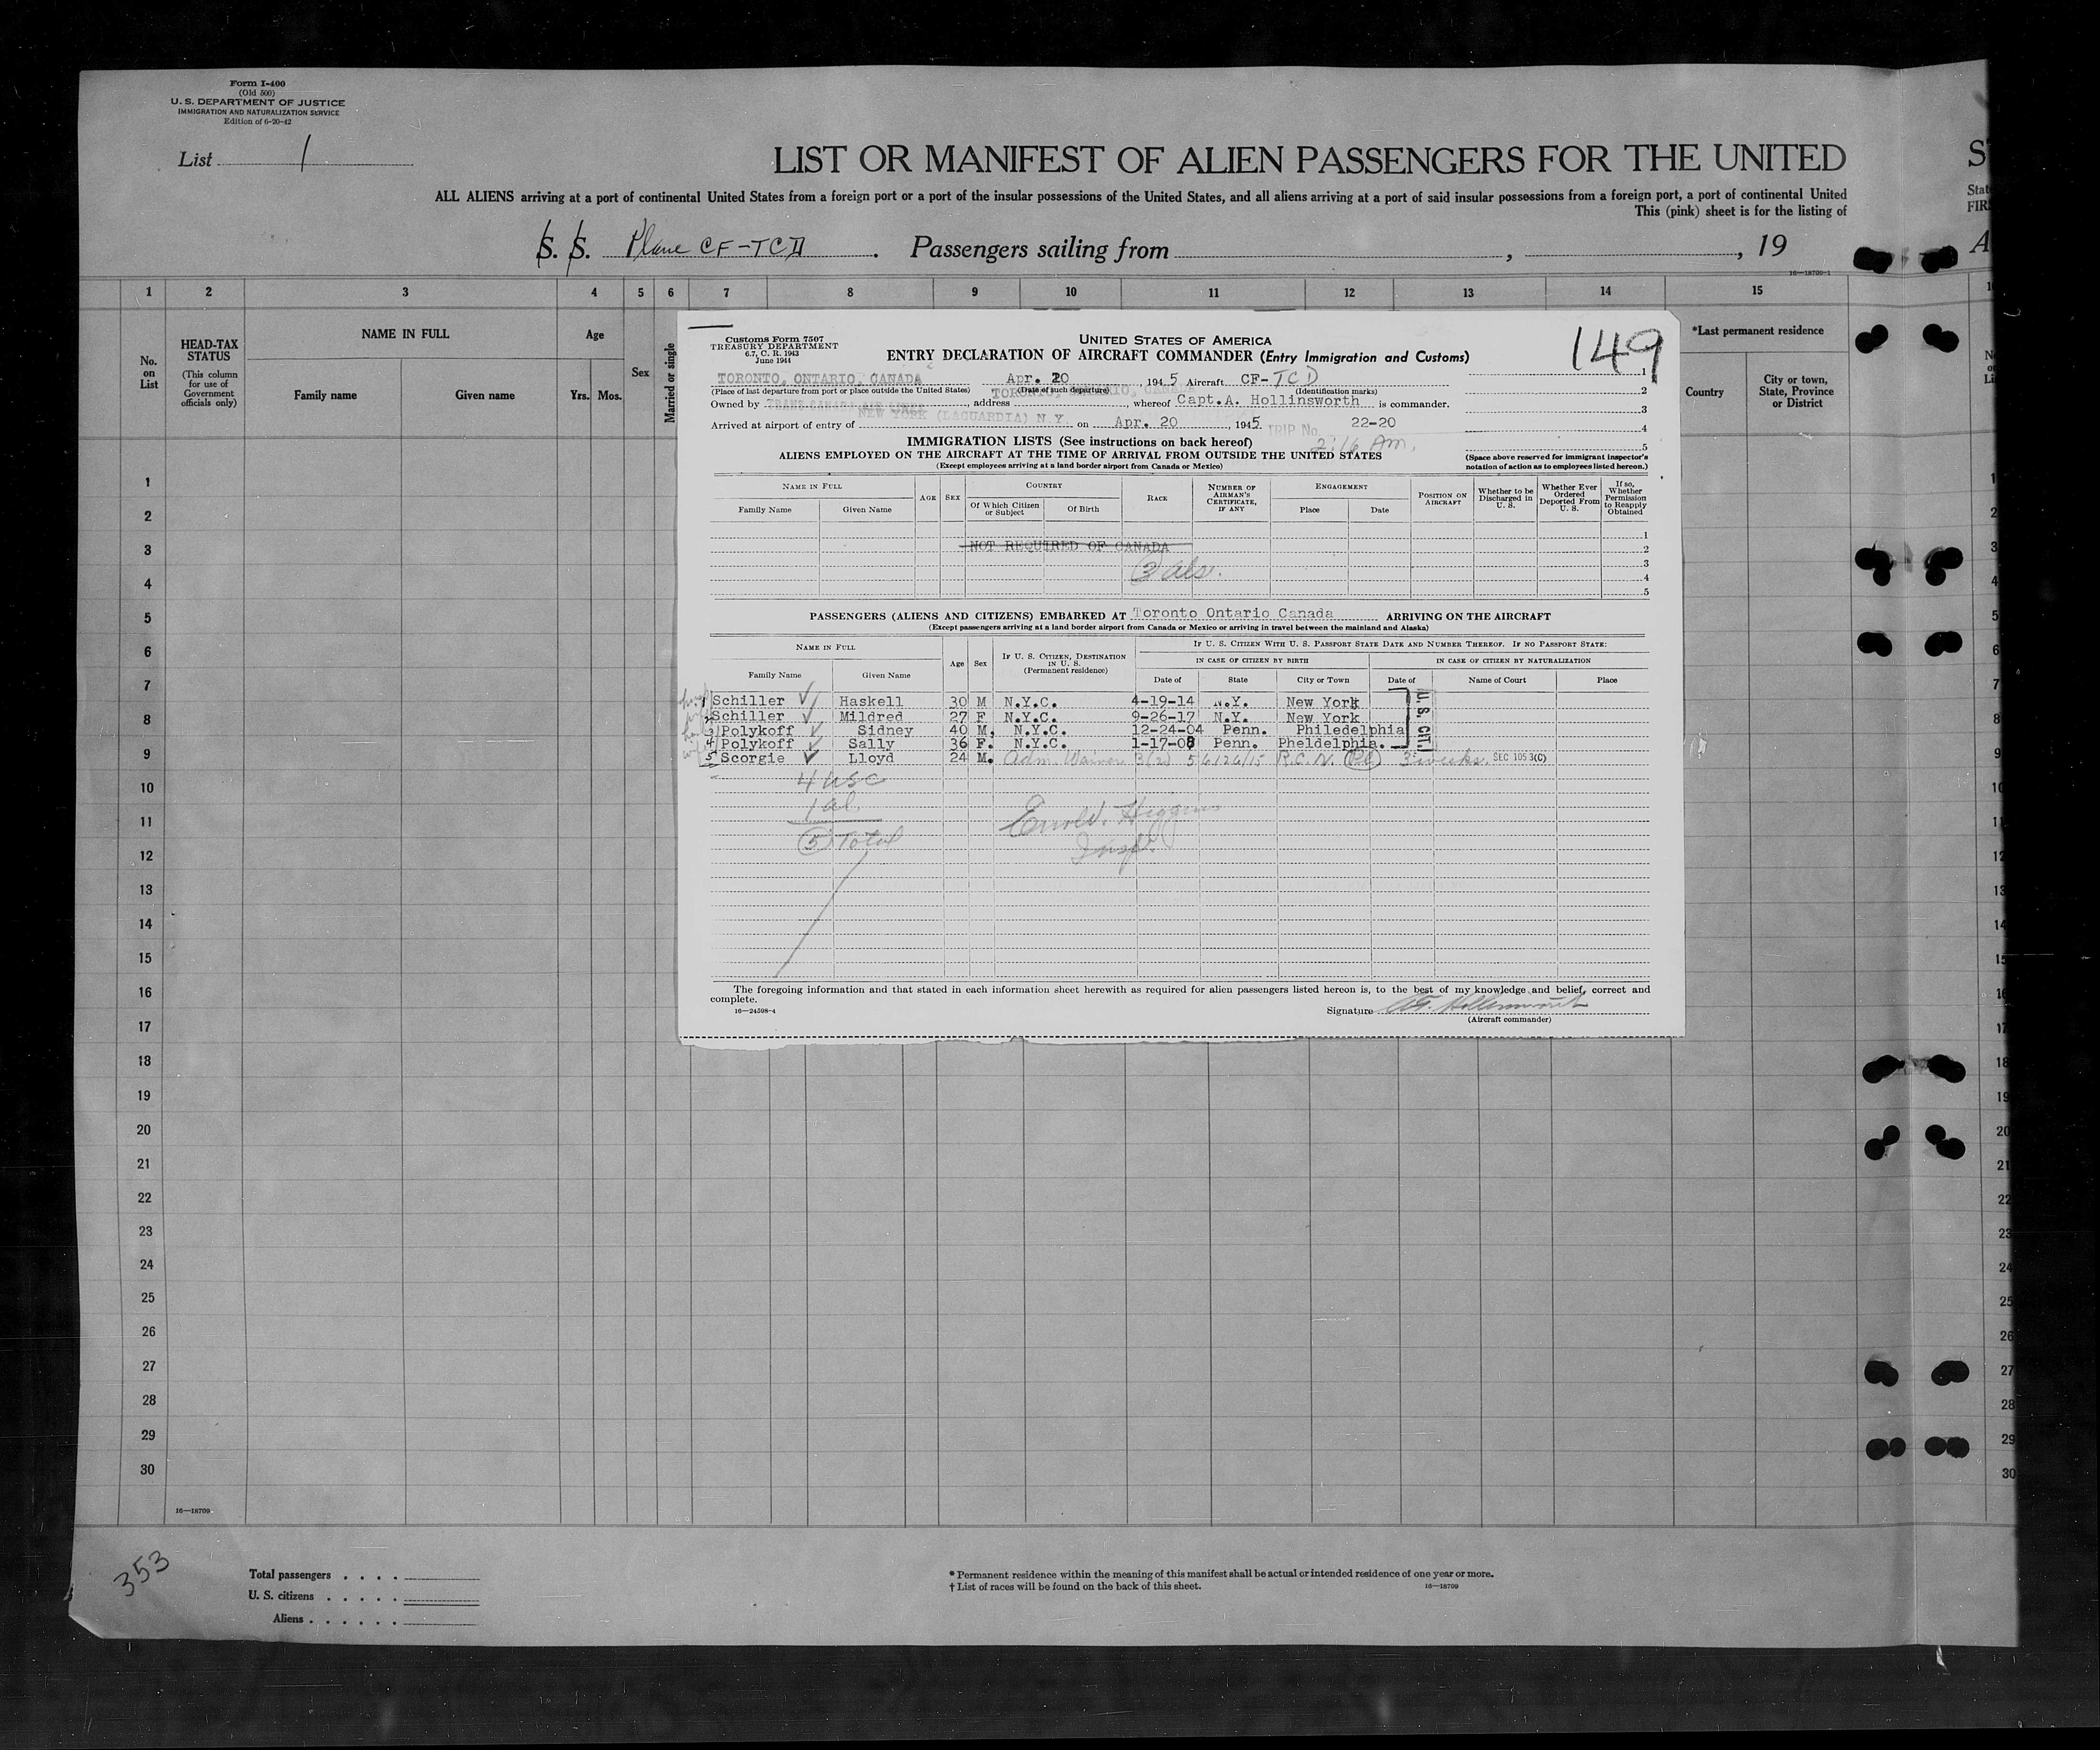 Form I-400
(Old 500)
U. S. DEPARTMENT OF JUSTICE
IMMIGRATION AND NATURALIZATION SERVICE
Edition of 6-20-42
List 1
LIST OR MANIFEST OF ALIEN PASSENGERS FOR THE UNITED
ALL ALIENS arriving at a port of continental United States from a foreign port or a port of the insular possessions of the United States, and all aliens arriving at a port of said insular possessions from a foreign port, a port of continental United
This (pink) sheet is for the listing of
S. S. Plane CF-TCD. Passengers sailing from , , 19
16—18709-1
1 2 3 4 5 6 7 8 9 10 11 12 13 14 15
No. on List
HEAD-TAX STATUS
(This column for use of Government officials only)
NAME IN FULL
Family name Given name
Age
Yrs. Mos.
Sex
Married or single
*Last permanent residence
Country
City or town, State, Province or District
Customs Form 7507
TREASURY DEPARTMENT
6.7, C. R. 1943
June 1944
UNITED STATES OF AMERICA
ENTRY DECLARATION OF AIRCRAFT COMMANDER (Entry Immigration and Customs)
149
TORONTO, ONTARIO, CANADA Apr. 20, 1945 Aircraft CF-TCD
(Place of last departure from port or place outside the United States) (Date of such departure) (Identification marks)
Owned by , address TORONTO, , whereof Capt.A. Hollinsworth is commander.
Arrived at airport of entry of NEW YORK (LAGUARDIA) N.Y. on Apr. 20, 1945 TRIP No. 22-20
2:16 Am.
IMMIGRATION LISTS (See instructions on back hereof)
ALIENS EMPLOYED ON THE AIRCRAFT AT THE TIME OF ARRIVAL FROM OUTSIDE THE UNITED STATES
(Except employees arriving at a land border airport from Canada or Mexico)
1
2
3
4
5
(Space above reserved for immigrant inspector's notation of action as to employees listed hereon.)
NAME IN FULL
Family Name Given Name
AGE SEX
COUNTRY
Of Which Citizen or Subject Of Birth
RACE
NUMBER OF AIRMAN'S CERTIFICATE, IF ANY
ENGAGEMENT
Place Date
POSITION ON AIRCRAFT
Whether to be Discharged in U. S.
Whether Ever Ordered Deported From U. S.
If so, Whether Permission to Reapply Obtained
1
NOT REQUIRED OF CANADA 2
3 Als. 3
4
5
PASSENGERS (ALIENS AND CITIZENS) EMBARKED AT Toronto Ontario Canada ARRIVING ON THE AIRCRAFT
(Except passengers arriving at a land border airport from Canada or Mexico or arriving in travel between the mainland and Alaska)
NAME IN FULL
Family Name Given Name
Age Sex
IF U. S. CITIZEN, DESTINATION IN U. S.
(Permanent residence)
IF U. S. CITIZEN WITH U. S. PASSPORT STATE DATE AND NUMBER THEREOF. IF NO PASSPORT STATE:
IN CASE OF CITIZEN BY BIRTH IN CASE OF CITIZEN BY NATURALIZATION
Date of State City or Town Date of Name of Court Place
1 Schiller Haskell 30 M N.Y.C. 4-19-14 N.Y. New York
2 Schiller Mildred 27 F N.Y.C. 9-26-17 N.Y. New York
3 Polykoff Sidney 40 M, N.Y.C. 12-24-04 Penn. Philedelphia
4 Polykoff Sally 36 F. N.Y.C. 1-17-08 Penn. Pheldelphia.
U. S. CIT.
5 Scorgie Lloyd 24 M. Adm. Waiver 3(2) R.C.N. 3 weeks. SEC 1053(C)
4 USC
1 al.
5 Total
Higgins
Insp.
The foregoing information and that stated in each information sheet herewith as required for alien passengers listed hereon is, to the best of my knowledge and belief, correct and
complete.
16—24598-4
Signature
(Aircraft commander)
1
2
3
4
5
6
7
8
9
10
11
12
13
14
15
16
17
18
19
20
21
22
23
24
25
26
27
28
29
30
16—18709
353
Total passengers . . . .
U. S. citizens . . . . .
Aliens . . . . . .
* Permanent residence within the meaning of this manifest shall be actual or intended residence of one year or more.
† List of races will be found on the back of this sheet.
16—18709